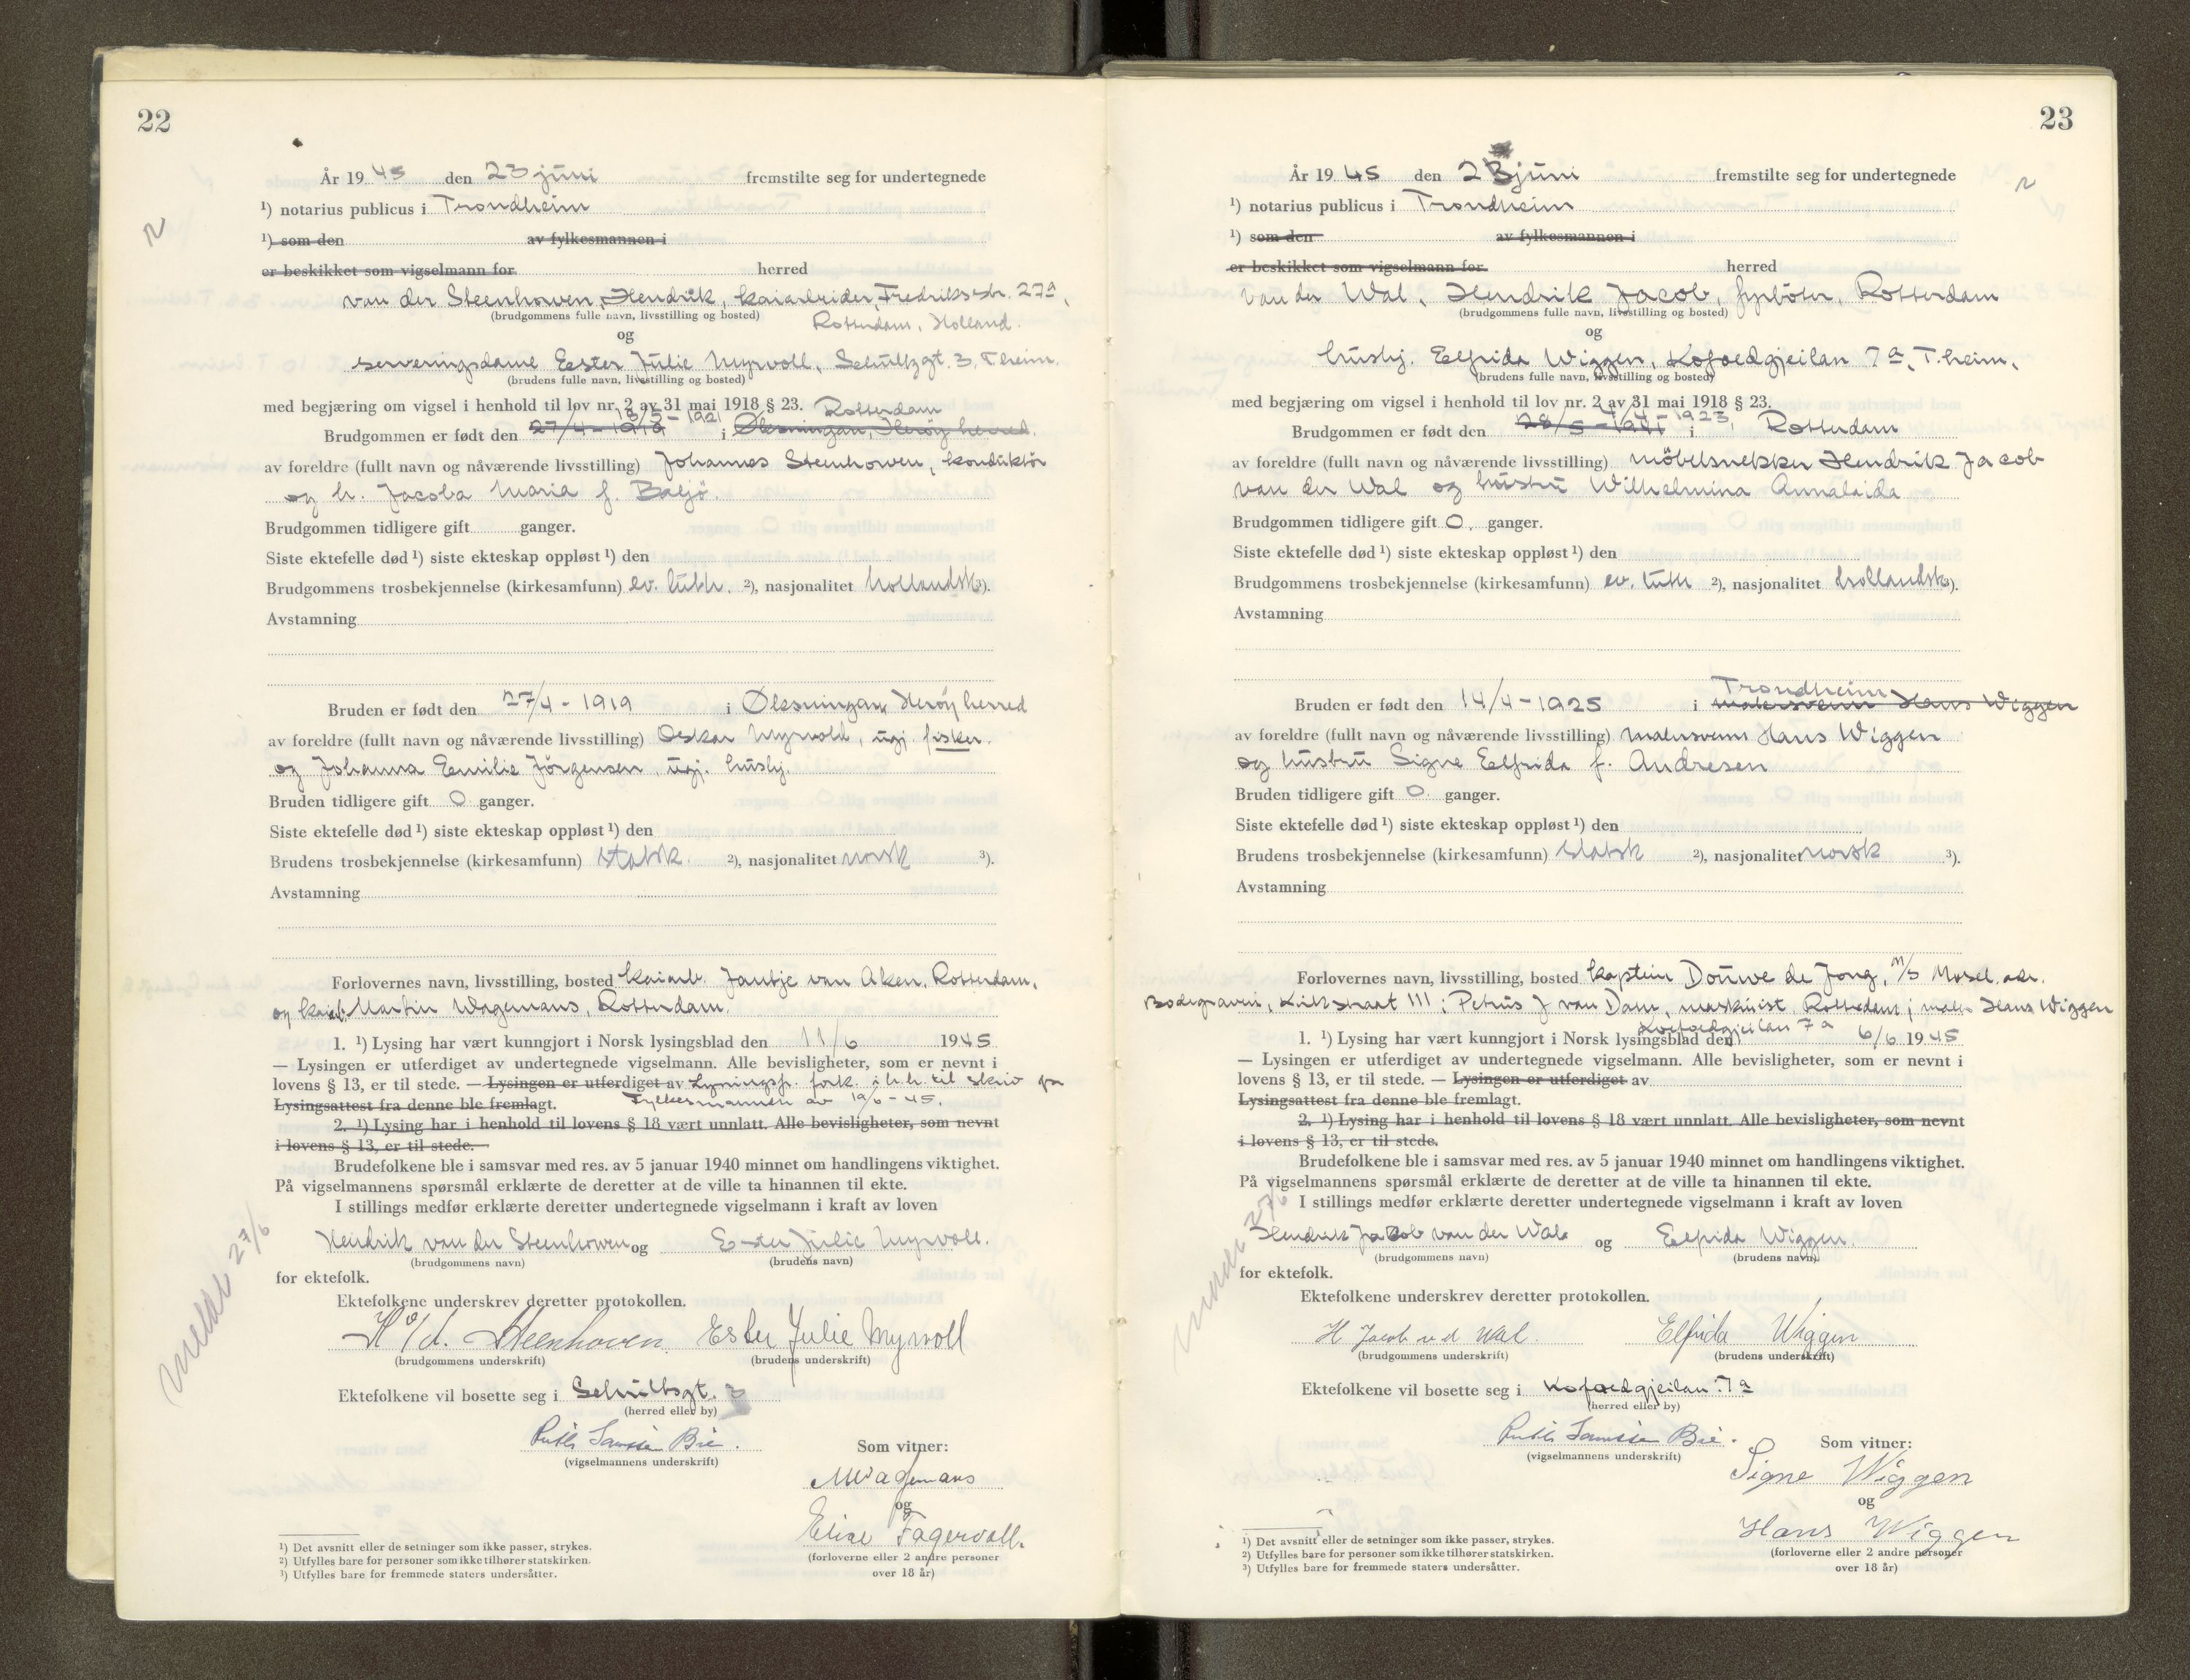 22
År 19 45 den 23 juni fremstilte seg for undertegnede
¹) notarius publicus i Trondheim
¹) som den av fylkesmannen i
er beskikket som vigselmann for herred
van der Steenhowen, Hendrik, kaiarbeider, Fredriksstr. 27ª,
(brudgommens fulle navn, livsstilling og bosted) Rotterdam, Holland.
og
serveringsdame Ester Julie Myrvoll, Schultzgt. 3, T.heim.
(brudens fulle navn, livsstilling og bosted)
med begjæring om vigsel i henhold til lov nr. 2 av 31 mai 1918 § 23. Rotterdam
Brudgommen er født den 27/4-1919 13/5-1921 i Øksningan, Herøy herred.
av foreldre (fullt navn og nåværende livsstilling) Johannes Steenhowen, konduktør
og h. Jacoba Maria f. Baljö.
Brudgommen tidligere gift ganger.
Siste ektefelle død ¹) siste ekteskap oppløst ¹) den
Brudgommens trosbekjennelse (kirkesamfunn) ev. luth. ²), nasjonalitet hollandsk ³).
Avstamning
Bruden er født den 27/4 - 1919 i Øksningan, Herøy herred
av foreldre (fullt navn og nåværende livsstilling) Oskar Myrvold, ugj. fisker.
og Johanna Emilie Jörgensen, ugj. hushj.
Bruden tidligere gift 0 ganger.
Siste ektefelle død ¹) siste ekteskap oppløst ¹) den
Brudens trosbekjennelse (kirkesamfunn) statsk. ²), nasjonalitet norsk ³).
Avstamning
Forlovernes navn, livsstilling, bosted kaiarb. Jantje van Aken, Rotterdam,
og kaiarb. Martin Wagemans, Rotterdam.
1. ¹) Lysing har vært kunngjort i Norsk lysingsblad den 11/6 1945
— Lysingen er utferdiget av undertegnede vigselmann. Alle bevisligheter, som er nevnt i
lovens § 13, er til stede. — Lysingen er utferdiget av Lysningsfr. fork. i h.h. til skriv fra
Lysingsattest fra denne ble fremlagt. Fylkesmannen av 19/6 - 45.
2. ¹) Lysing har i henhold til lovens § 18 vært unnlatt. Alle bevisligheter, som nevnt
i lovens § 13, er til stede.
Brudefolkene ble i samsvar med res. av 5 januar 1940 minnet om handlingens viktighet.
På vigselmannens spørsmål erklærte de deretter at de ville ta hinannen til ekte.
I stillings medfør erklærte deretter undertegnede vigselmann i kraft av loven
Hendrik van der Steenhowen og Ester Julie Myrvoll.
(brudgommens navn) (brudens navn)
for ektefolk.
Meldt 27/6
Ektefolkene underskrev deretter protokollen.
H v/d. Steenhoven Ester Julie Myrvoll
(brudgommens underskrift) (brudens underskrift)
Ektefolkene vil bosette seg i Schultzgt. 3
(herred eller by)
(vigselmannens underskrift)
Som vitner:
MWagemans
og
Elise Fagervoll.
(forloverne eller 2 andre personer
over 18 år)
¹) Det avsnitt eller de setninger som ikke passer, strykes.
²) Utfylles bare for personer som ikke tilhører statskirken.
³) Utfylles bare for fremmede staters undersåtter.
23
År 19 45 den 23 juni fremstilte seg for undertegnede
¹) notarius publicus i Trondheim
¹) som den av fylkesmannen i
er beskikket som vigselmann for herred
van der Wal, Hendrik Jacob, fyrböter, Rotterdam
(brudgommens fulle navn, livsstilling og bosted)
og
hushj. Elfrida Wiggen, Kofoedgjeilan 7ª, T.heim,
(brudens fulle navn, livsstilling og bosted)
med begjæring om vigsel i henhold til lov nr. 2 av 31 mai 1918 § 23.
Brudgommen er født den 28/5-1921 4/4-1923, i Rotterdam
av foreldre (fullt navn og nåværende livsstilling) möbelsnekker Hendrik Jacob
van der Wal og hustru Wilhelmina Annalaida
Brudgommen tidligere gift 0. ganger.
Siste ektefelle død ¹) siste ekteskap oppløst ¹) den
Brudgommens trosbekjennelse (kirkesamfunn) ev. luth ²), nasjonalitet hollandsk ³).
Avstamning
Bruden er født den 14/4 - 1925 i Trondheim malersvenn Hans Wiggen
av foreldre (fullt navn og nåværende livsstilling) malersvenn Hans Wiggen
og hustru Signe Elfrida f. Andresen
Bruden tidligere gift 0. ganger.
Siste ektefelle død ¹) siste ekteskap oppløst ¹) den
Brudens trosbekjennelse (kirkesamfunn) statsk ²), nasjonalitet norsk ³).
Avstamning
Forlovernes navn, livsstilling, bosted kaptein Douwe de Jong, M/S Mosel. adr.
Bodegraven, Kirkstraat 111; Petrus J van Dam, maskinist, Rotterdam; maler Hans Wiggen
Kofoedgjeilan 7ª
1. ¹) Lysing har vært kunngjort i Norsk lysingsblad den 6/6 1945
— Lysingen er utferdiget av undertegnede vigselmann. Alle bevisligheter, som er nevnt i
lovens § 13, er til stede. — Lysingen er utferdiget av
Lysingsattest fra denne ble fremlagt.
2. ¹) Lysing har i henhold til lovens § 18 vært unnlatt. Alle bevisligheter, som nevnt
i lovens § 13, er til stede.
Brudefolkene ble i samsvar med res. av 5 januar 1940 minnet om handlingens viktighet.
På vigselmannens spørsmål erklærte de deretter at de ville ta hinannen til ekte.
I stillings medfør erklærte deretter undertegnede vigselmann i kraft av loven
Hendrik Jacob van der Wal og Elfrida Wiggen.
(brudgommens navn) (brudens navn)
for ektefolk.
Meldt 27/6
Ektefolkene underskrev deretter protokollen.
H Jacob v d Wal. Elfrida Wiggen
(brudgommens underskrift) (brudens underskrift)
Ektefolkene vil bosette seg i Kofoedgjeilan 7ª
(herred eller by)
(vigselmannens underskrift)
Som vitner:
Signe Wiggen
og
Hans Wiggen
(forloverne eller 2 andre personer
over 18 år)
¹) Det avsnitt eller de setninger som ikke passer, strykes.
²) Utfylles bare for personer som ikke tilhører statskirken.
³) Utfylles bare for fremmede staters undersåtter.